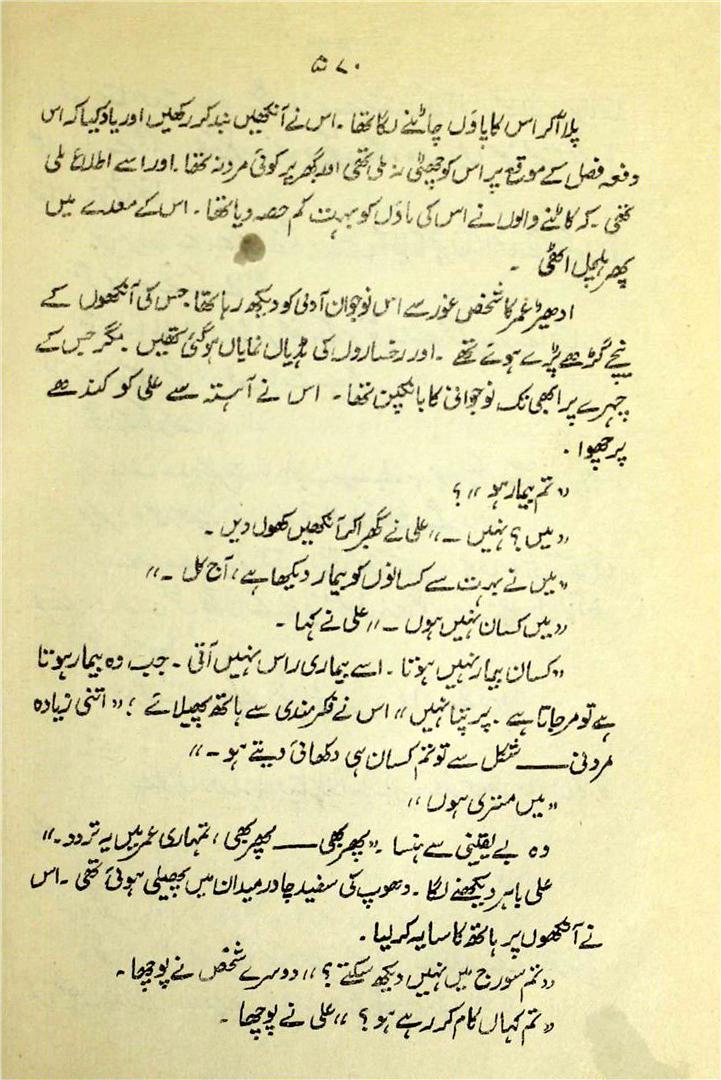 ۵۷۰
پلا آکر اس کا پاؤں چاٹنے لگا تھا ۔ اس نے آنکھیں بند کر رکھیں اور یاد کیا کہ اس
دفعہ فصل کے موقع پر اس کو چھٹی نہ ملی تھی اور گھر پر کوئی مرد نہ تھا ۔ اور اسے اطلاع ملی
تھی ۔ کہ کاٹنے والوں نے اس کی ماؤں کو بہت کم حصہ دیا تھا ۔ اس کے معدے میں
پھر ہلچل اٹھی ۔
ادھیڑ عمر کا شخص غور سے اس نوجوان آدمی کو دیکھ رہا تھا جس کی آنکھوں کے
نیچے گڑھے پڑے ہوئے تھے ۔ اور رخساروں کی ہڈیاں نمایاں ہو گئی تھیں ۔ مگر جس کے
چہرے پر ابھی تک نوجوانی کا بانکپن تھا ۔ اس نے آہستہ سے علی کو کندھے
پر چھوا ۔
“تم بیمار ہو” ؟
“میں ؟ نہیں ۔” علی نے گھبرا کر آنکھیں کھول دیں ۔
“میں نے بہت سے کسانوں کو بیمار دیکھا ہے، آج کل ۔”
“میں کسان نہیں ہوں ۔” علی نے کہا ۔
“کسان بیمار نہیں ہوتا ۔ اسے بیماری راس نہیں آتی ۔ جب وہ بیمار ہوتا
ہے تو مر جاتا ہے ۔ پر پتا نہیں” اس نے فکر مندی سے ہاتھ پھیلائے ؛ “اتنی زیادہ
مردنی —— شکل سے تو تم کسان ہی دکھائی دیتے ہو ۔”
“میں مستری ہوں”
وہ بے یقینی سے ہنسا ۔ “پھر بھی —— پھر بھی، تمہاری عمر میں یہ تردد ۔”
علی باہر دیکھنے لگا ۔ دھوپ کی سفید چادر میدان میں پھیلی ہوئی تھی ۔ اس
نے آنکھوں پر ہاتھ کا سایہ کر لیا ۔
“تم سورج میں نہیں دیکھ سکتے ؟” دوسرے شخص نے پوچھا ۔
“تم کہاں کام کر رہے ہو ؟” علی نے پوچھا ۔